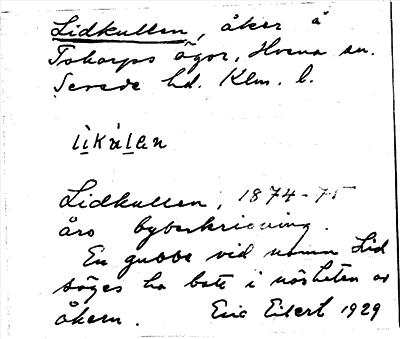 Lidkullen, åker å
Tokarps ägor, Hvena sn.
Sevede hd. Klm. l.
lìkàlan
Lidkullen, 1874-75
års bybeskrivning.
En gubbe vid namn Lid
säges ha bott i närheten av
åkern. Eric Eilert 1929